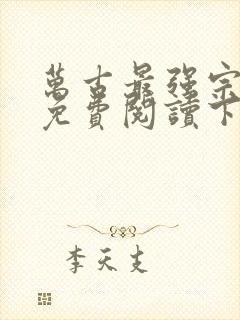 萬古最強宗
免費閱讀下
李天支